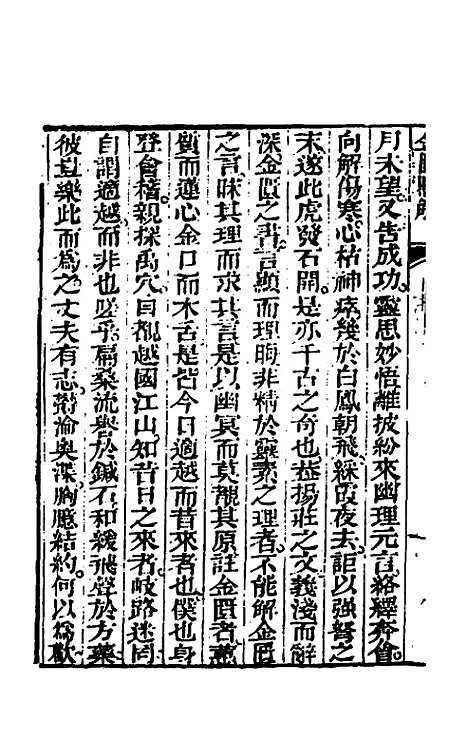 月未望又告成功靈思妙悟離披紛來幽理元言絡繹奔會
向解傷寒心枯神瘁幾於白鳳朝飛綵霞夜去詎以強弩之
末遂此虎發石開是亦千古之奇也蓋揚莊之文義淺而辭
深金匱之書言顯而理晦非精於靈素之理者不能解金匱
之言昧其理而求其言是以幽冥而莫覩其原註金匱者蕙
質而蓬心金口而木舌是皆今日適越而昔來者也僕也身
登會稽親探禹穴目覩越國江山知昔日之來者岐路迷罔
自謂適越而非也嗟乎扁桑流譽於鍼石和緩飛聲於方藥
彼豈樂此而為之丈夫有志滯淪奧渫胸臆結約何以為歡